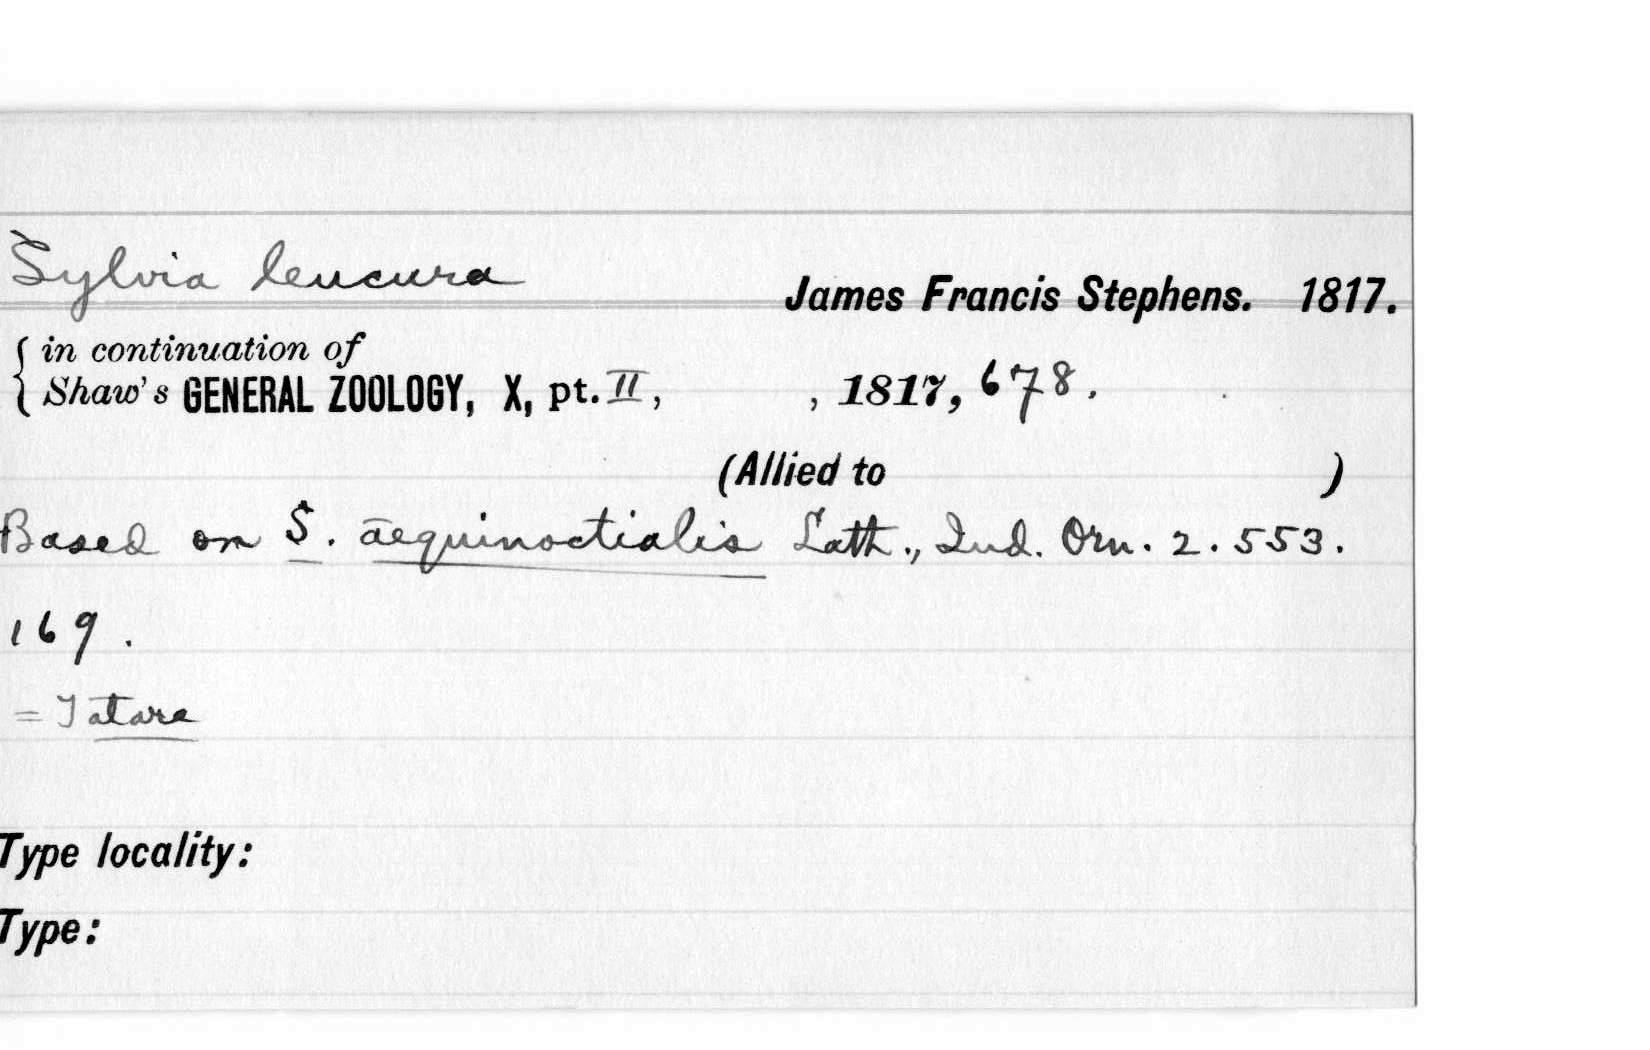 Sylvia leucura
James Francis Stephens. 1817.
in continuation of
Shaw's GENERAL ZOOLOGY, X, pt. II, , 1817, 678.
(Allied to )
Based on S. aequinoctialis Lath., Ind. Orn. 2. 553.
169.
= Tatare
Type locality:
Type: